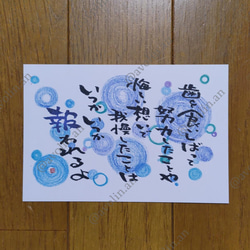 歯を食いしばって
努力したことや
悔しい想いで
我慢したことは
いつかいつか
報われるよ